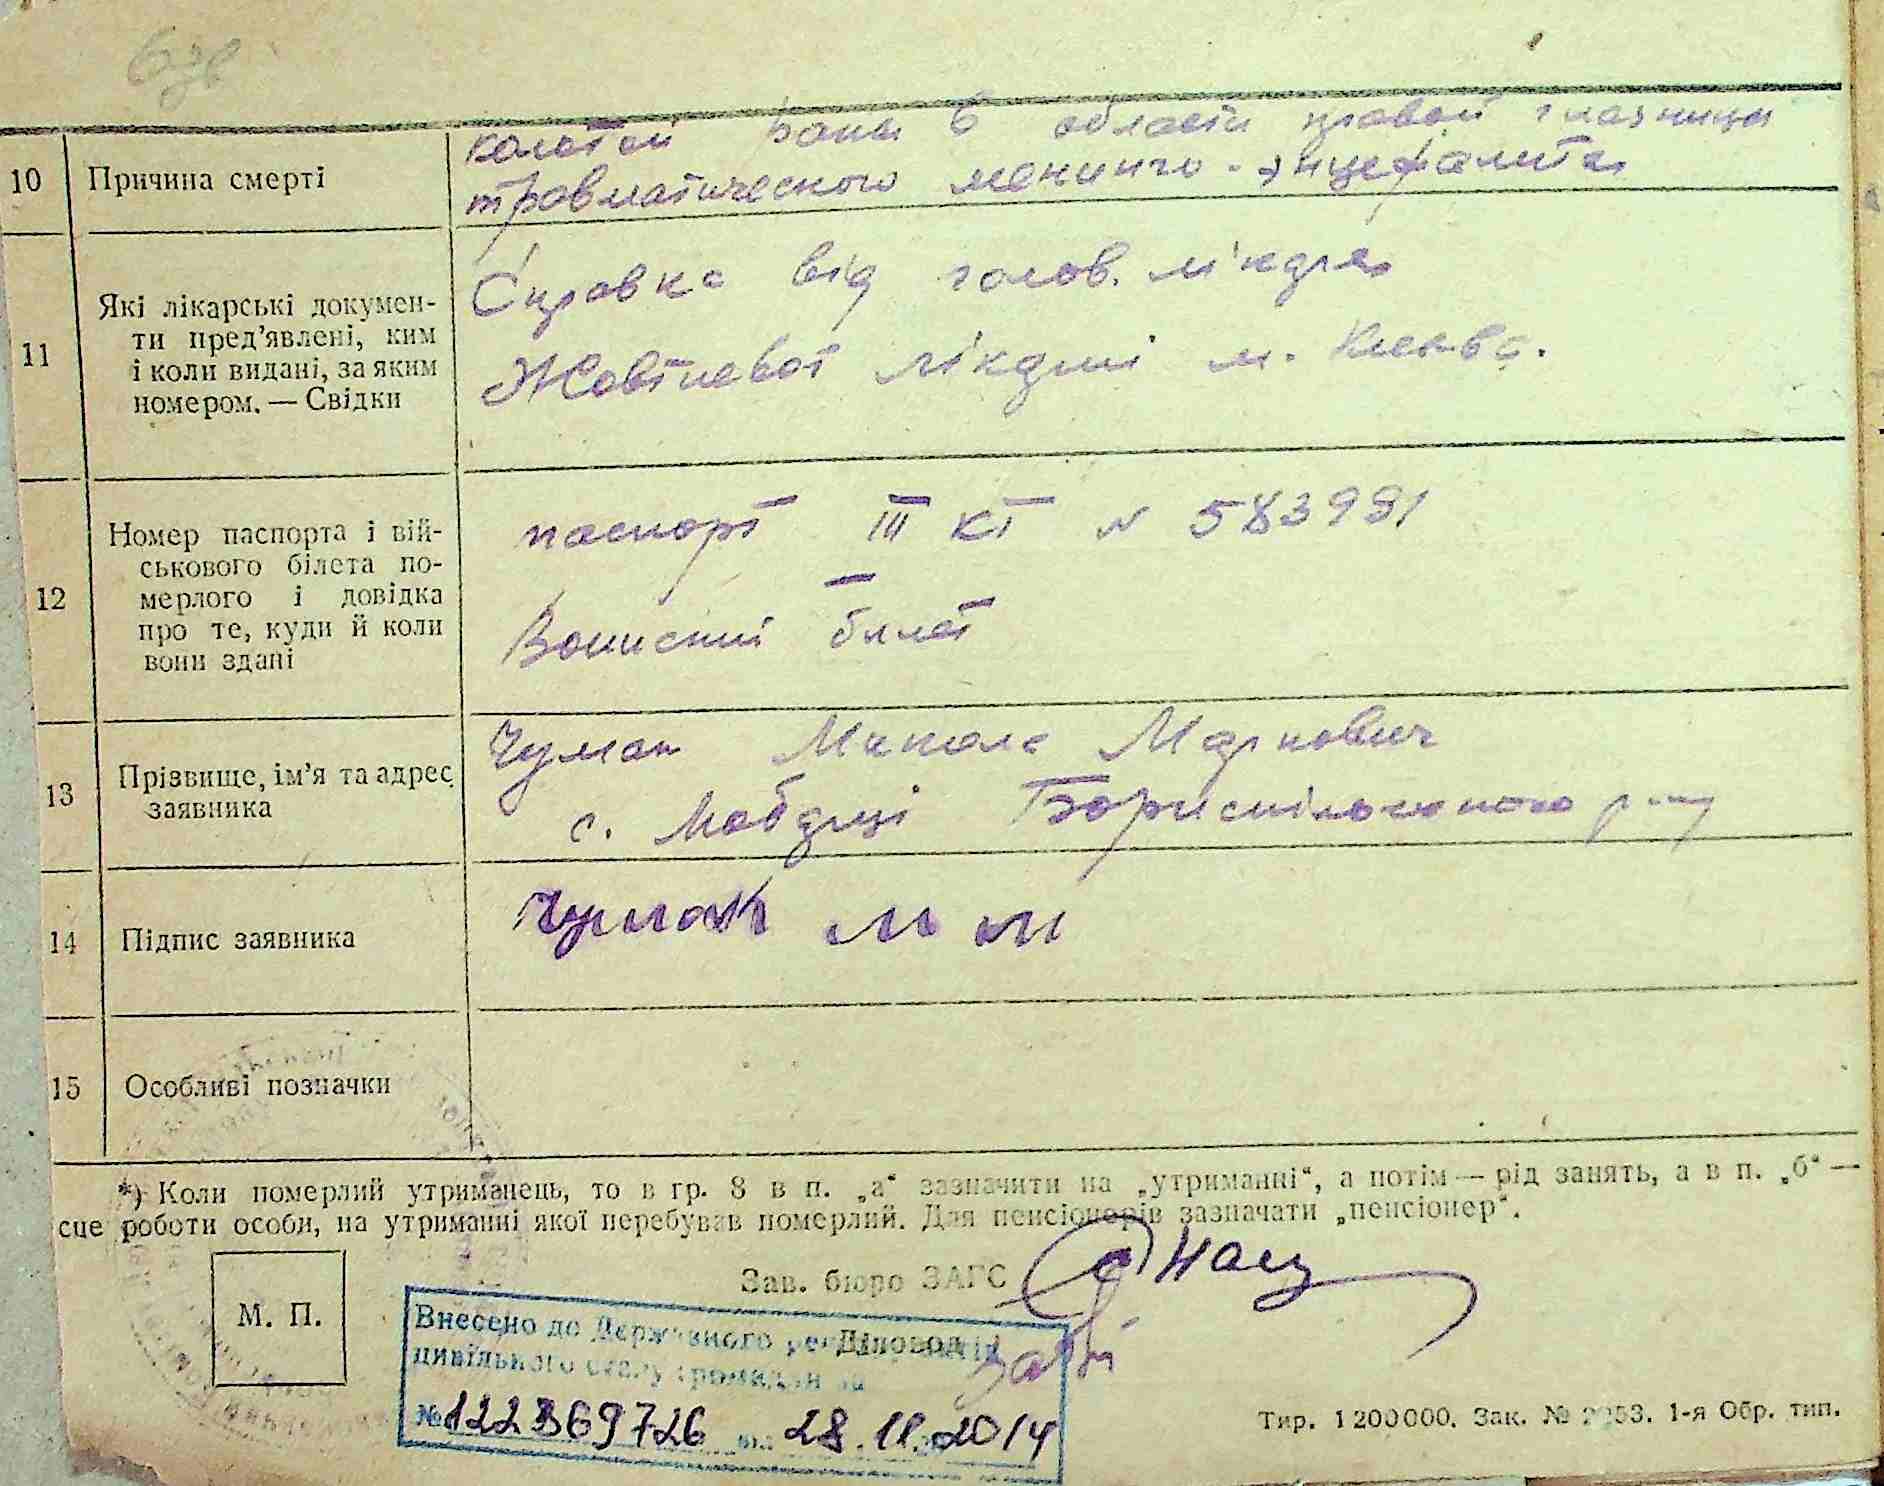 10 Причина смерті
колотой раны в области правой глазницы
травматического менинго-энцефалита
11 Які лікарські докумен-
ти пред’явлені, ким
і коли видані, за яким
номером. — Свідки
Справка від голов. лікаря
Жовтневої лікарні м. Києва.
12 Номер паспорта і вій-
ськового білета по-
мерлого і довідка
про те, куди й коли
вони здані
паспорт III КТ N 583991
Воинский билет
13 Прізвище, ім’я та адрес
заявника
Чумак Микола Маркович
с. Бориспільського р-ну
14 Підпис заявника
Чумак М М
15 Особливі позначки
*) Коли померлий утриманець, то в гр. 8 в п. „а“ зазначити на „утриманні“, а потім — рід занять, а в п. „б“ —
сце роботи особи, на утриманні якої перебував померлий. Для пенсіонерів зазначати „пенсіонер“.
Зав. бюро ЗАГС
М. П.
Діловод
Внесено до Державного реєстру актів
цивільного стану громадян за
№ 122369726 від 28.11.2014
Тир. 1 200 000. Зак. № 53. 1-я Обр. тип.